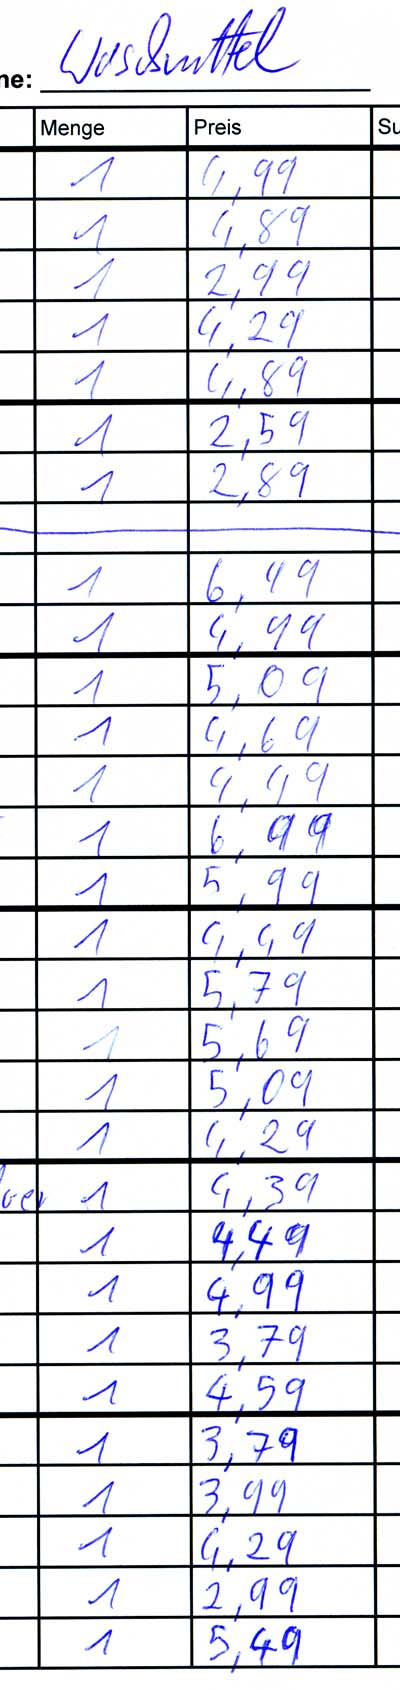 ne: Waschmittel
Menge Preis Su
1 4,99
1 4,89
1 2,99
1 4,29
1 4,89
1 2,59
1 2,89
1 6,49
1 4,99
1 5,09
1 4,69
1 4,49
1 6,99
1 5,99
1 4,49
1 5,79
1 5,69
1 5,09
1 4,29
1 4,39
1 4,49
1 4,99
1 3,79
1 4,59
1 3,79
1 3,99
1 4,29
1 2,99
1 5,49